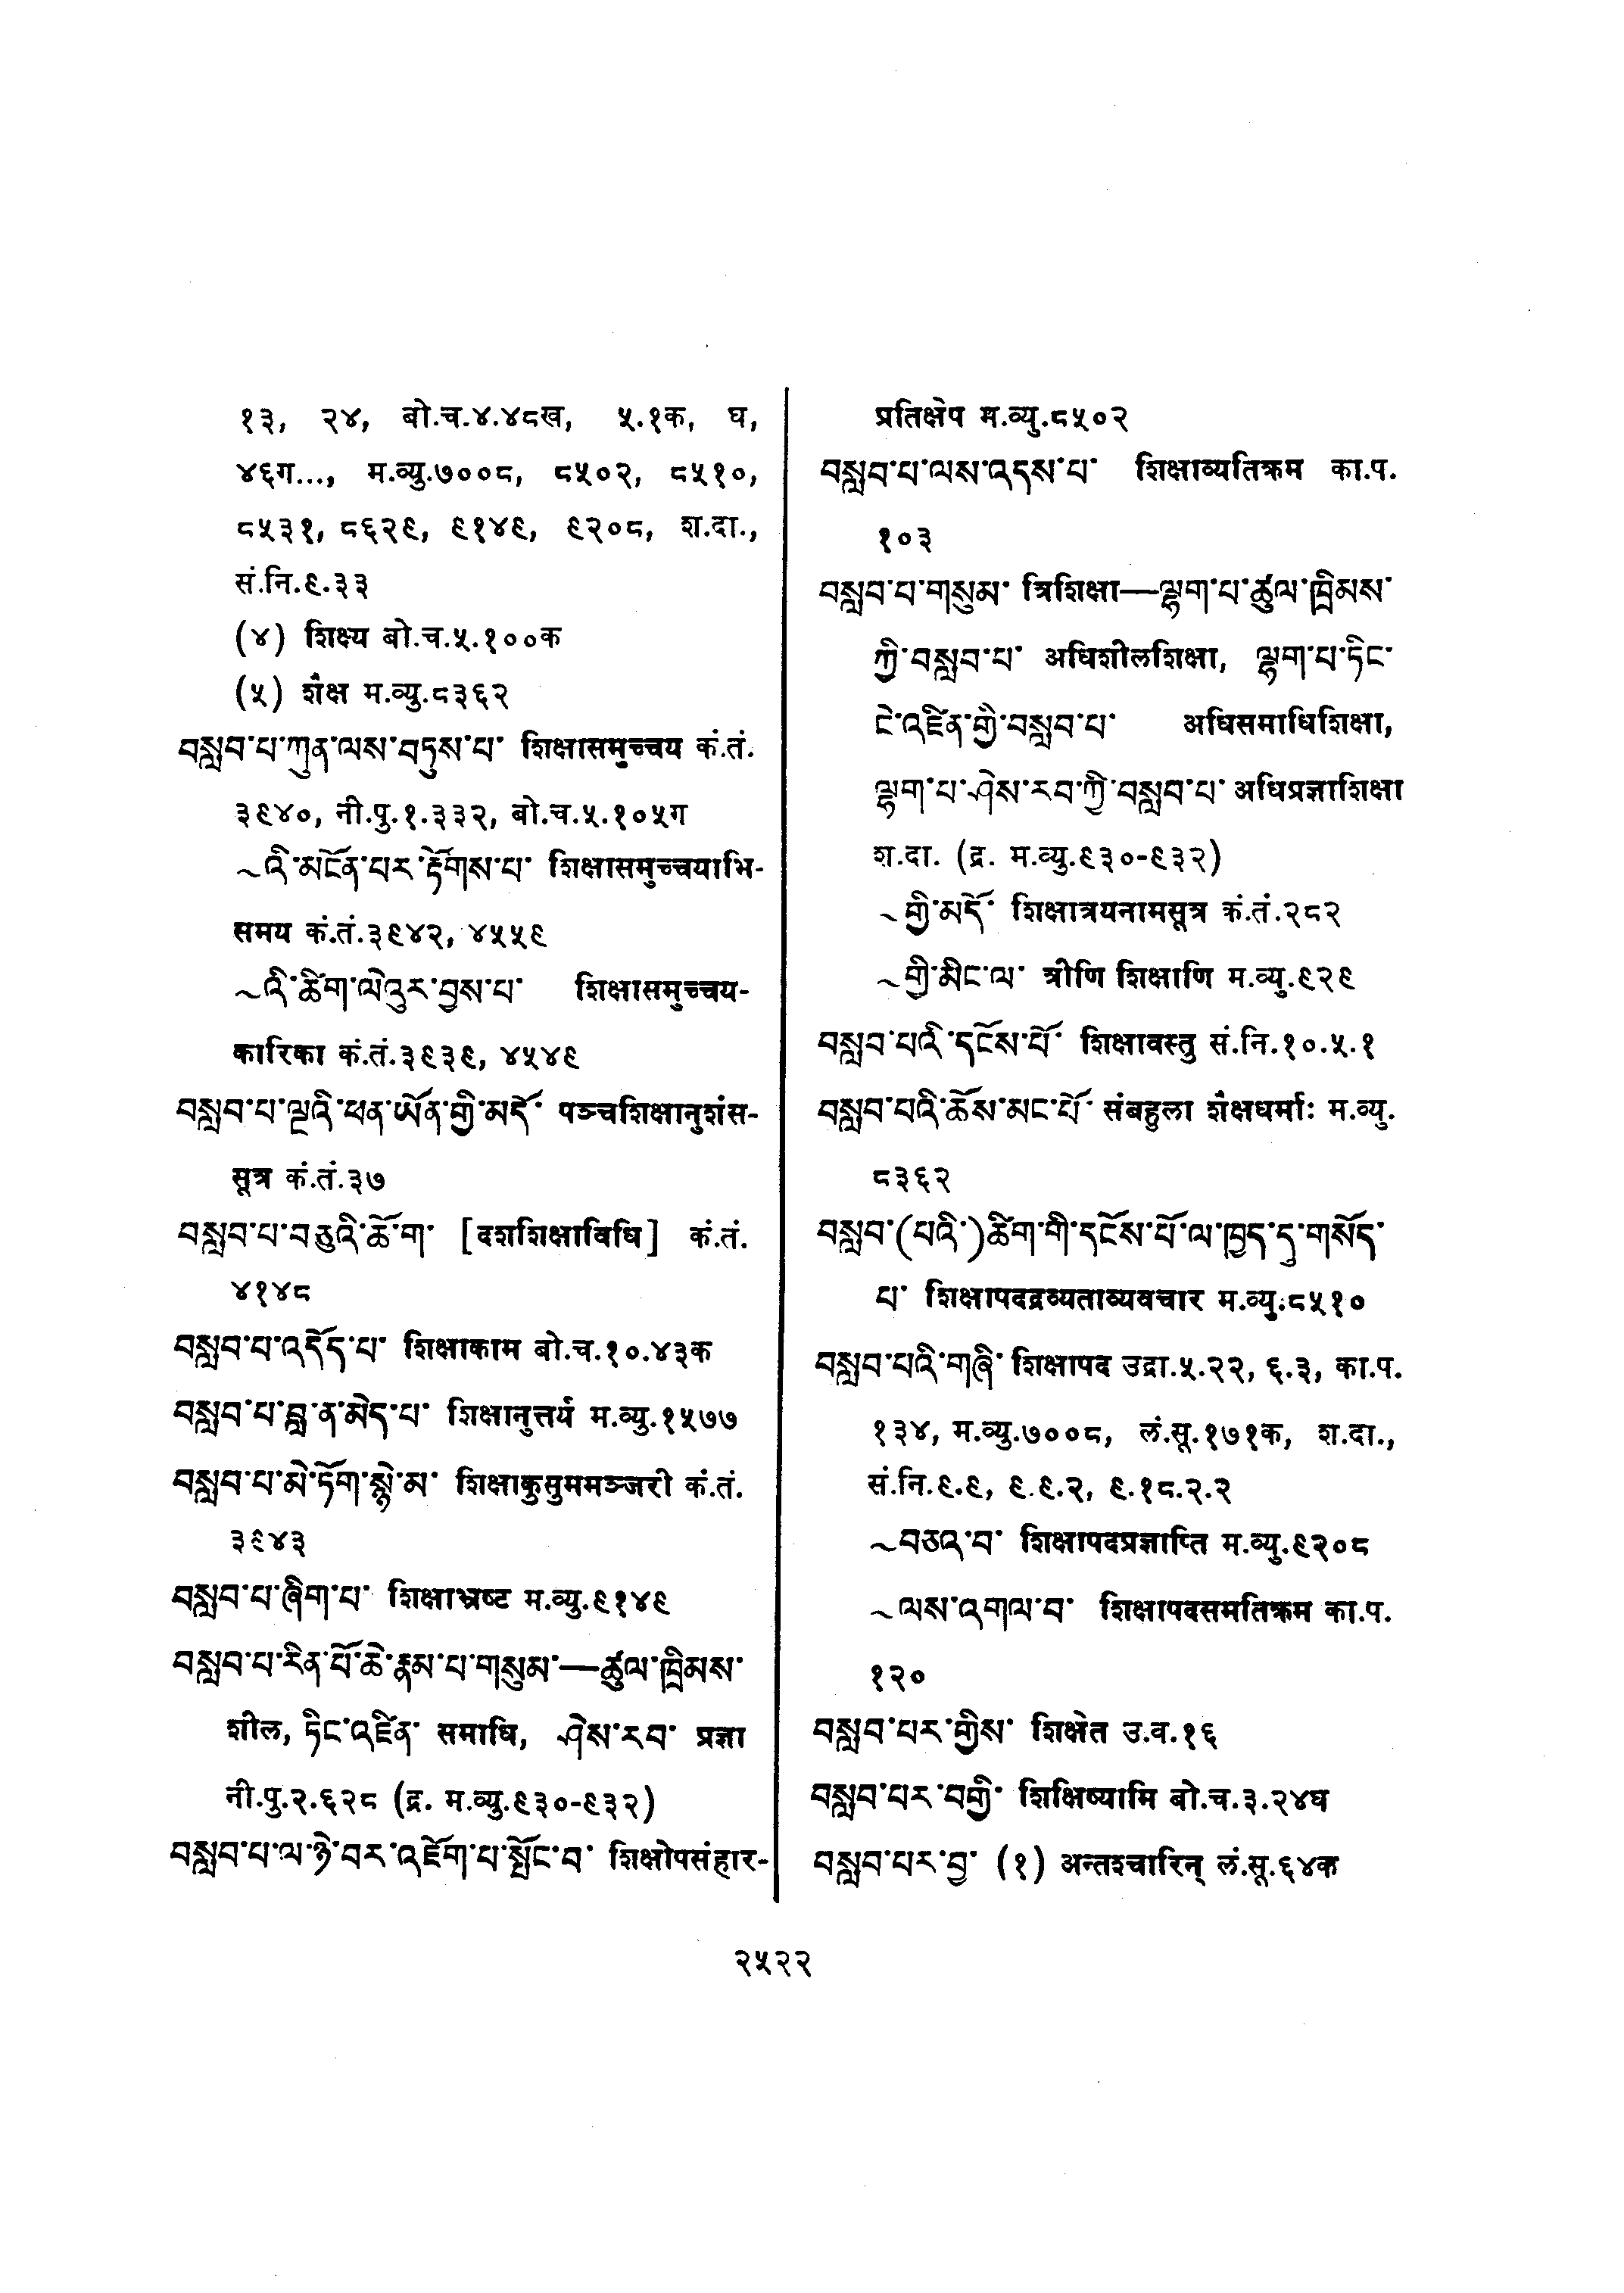 १३, २४, बो.च.४.४८ख, ५.१क, घ,
४६ग..., म.व्यु.७००८, ८५०२, ८५१०,
८५३१, ८६२९, ९१४९, ९२०८, श.दा.,
सं.नि.९.३३
(४) शिक्ष्य बो.च.५.१००क
(५) शैक्ष म.व्यु.८३६२
བསླབ་པ་ཀུན་ལས་བཏུས་པ་ शिक्षासमुच्चय कं.तं.
३९४०, नी.पु.१.३३२, बो.च.५.१०५ग
~འི་མངོན་པར་རྟོགས་པ་ शिक्षासमुच्चयाभि-
समय कं.तं.३९४२, ४५५९
~འི་ཚིག་ལེའུར་བྱས་པ་ शिक्षासमुच्चय-
कारिका कं.तं.३९३९, ४५४९
བསླབ་པ་ལྔའི་ཕན་ཡོན་གྱི་མདོ་ पञ्चशिक्षानुशंस-
सूत्र कं.तं.३७
བསླབ་པ་བཅུའི་ཆོ་ག་ [दशशिक्षाविधि] कं.तं.
४१४८
བསླབ་པ་འདོད་པ་ शिक्षाकाम बो.च.१०.४३क
བསླབ་པ་བླ་ན་མེད་པ་ शिक्षानुत्तर्य म.व्यु.१५७७
བསླབ་པ་མེ་ཏོག་སྙེ་མ་ शिक्षाकुसुममञ्जरी कं.तं.
३९४३
བསླབ་པ་ཞིག་པ་ शिक्षाभ्रष्ट म.व्यु.९१४९
བསླབ་པ་རིན་པོ་ཆེ་རྣམ་པ་གསུམ་—ཚུལ་ཁྲིམས་
शील, ཏིང་འཛིན་ समाधि, ཤེས་རབ་ प्रज्ञा
नी.पु.२.६२८ (द्र. म.व्यु.९३०-९३२)
བསླབ་པ་ལ་ཉེ་བར་འཇོག་པ་སྤོང་བ་ शिक्षोपसंहार-
प्रतिक्षेप म.व्यु.८५०२
བསླབ་པ་ལས་འདས་པ་ शिक्षाव्यतिक्रम का.प.
१०३
བསླབ་པ་གསུམ་ त्रिशिक्षा—ལྷག་པ་ཚུལ་ཁྲིམས་
ཀྱི་བསླབ་པ་ अधिशीलशिक्षा, ལྷག་པ་ཏིང་
ངེ་འཛིན་གྱི་བསླབ་པ་ अधिसमाधिशिक्षा,
ལྷག་པ་ཤེས་རབ་ཀྱི་བསླབ་པ་ अधिप्रज्ञाशिक्षा
श.दा. (द्र. म.व्यु.९३०-९३२)
~གྱི་མདོ་ शिक्षात्रयनामसूत्र कं.तं.२८२
~གྱི་མིང་ལ་ त्रीणि शिक्षाणि म.व्यु.९२९
བསླབ་པའི་དངོས་པོ་ शिक्षावस्तु सं.नि.१०.५.१
བསླབ་པའི་ཆོས་མང་པོ་ संबहुला शैक्षधर्माः म.व्यु.
८३६२
བསླབ་(པའི་)ཚིག་གི་དངོས་པོ་ལ་ཁྱད་དུ་གསོད་
པ་ शिक्षापदद्रव्यताव्यवचार म.व्यु.८५१०
བསླབ་པའི་གཞི་ शिक्षापद उद्रा.५.२२, ६.३, का.प.
१३४, म.व्यु.७००८, लं.सू.१७१क, श.दा.,
सं.नि.९.९, ९.९.२, ९.१८.२.२
~བཅའ་བ་ शिक्षापदप्रज्ञाप्ति म.व्यु.९२०८
~ལས་འགལ་བ་ शिक्षापदसमतिक्रम का.प.
१२०
བསླབ་པར་གྱིས་ शिक्षेत उ.व.१६
བསླབ་པར་བགྱི་ शिक्षिष्यामि बो.च.३.२४घ
བསླབ་པར་བྱ་ (१) अन्तश्चारिन् लं.सू.६४क
२५२२